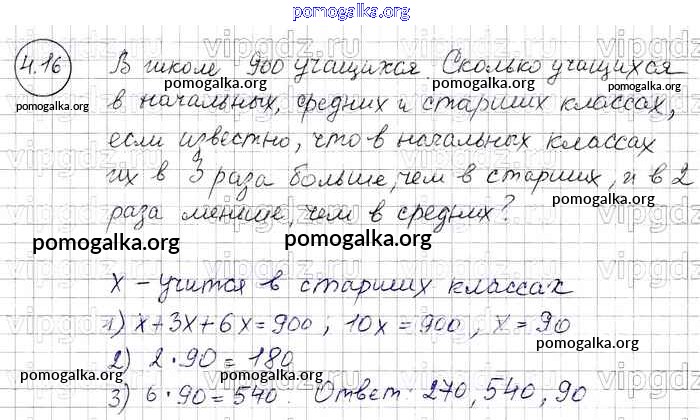 pomogalka.org
4.16 В школе 900 учащихся. Сколько учащихся
pomogalka.org pomogalka.org pomogalka.org
в начальных, средних и старших классах,
если известно, что в начальных классах
их в 3 раза больше, чем в старших, и в 2
pomogalka.org
раза меньше, чем в средних?
pomogalka.org pomogalka.org
x – учится в старших классах
1) x+3x+6x=900; 10x=900, x=90
pomogalka.org
2) 2·90=180
pomogalka.org pomogalka.org
3) 6·90=540. Ответ: 270, 540, 90
pomogalka.org